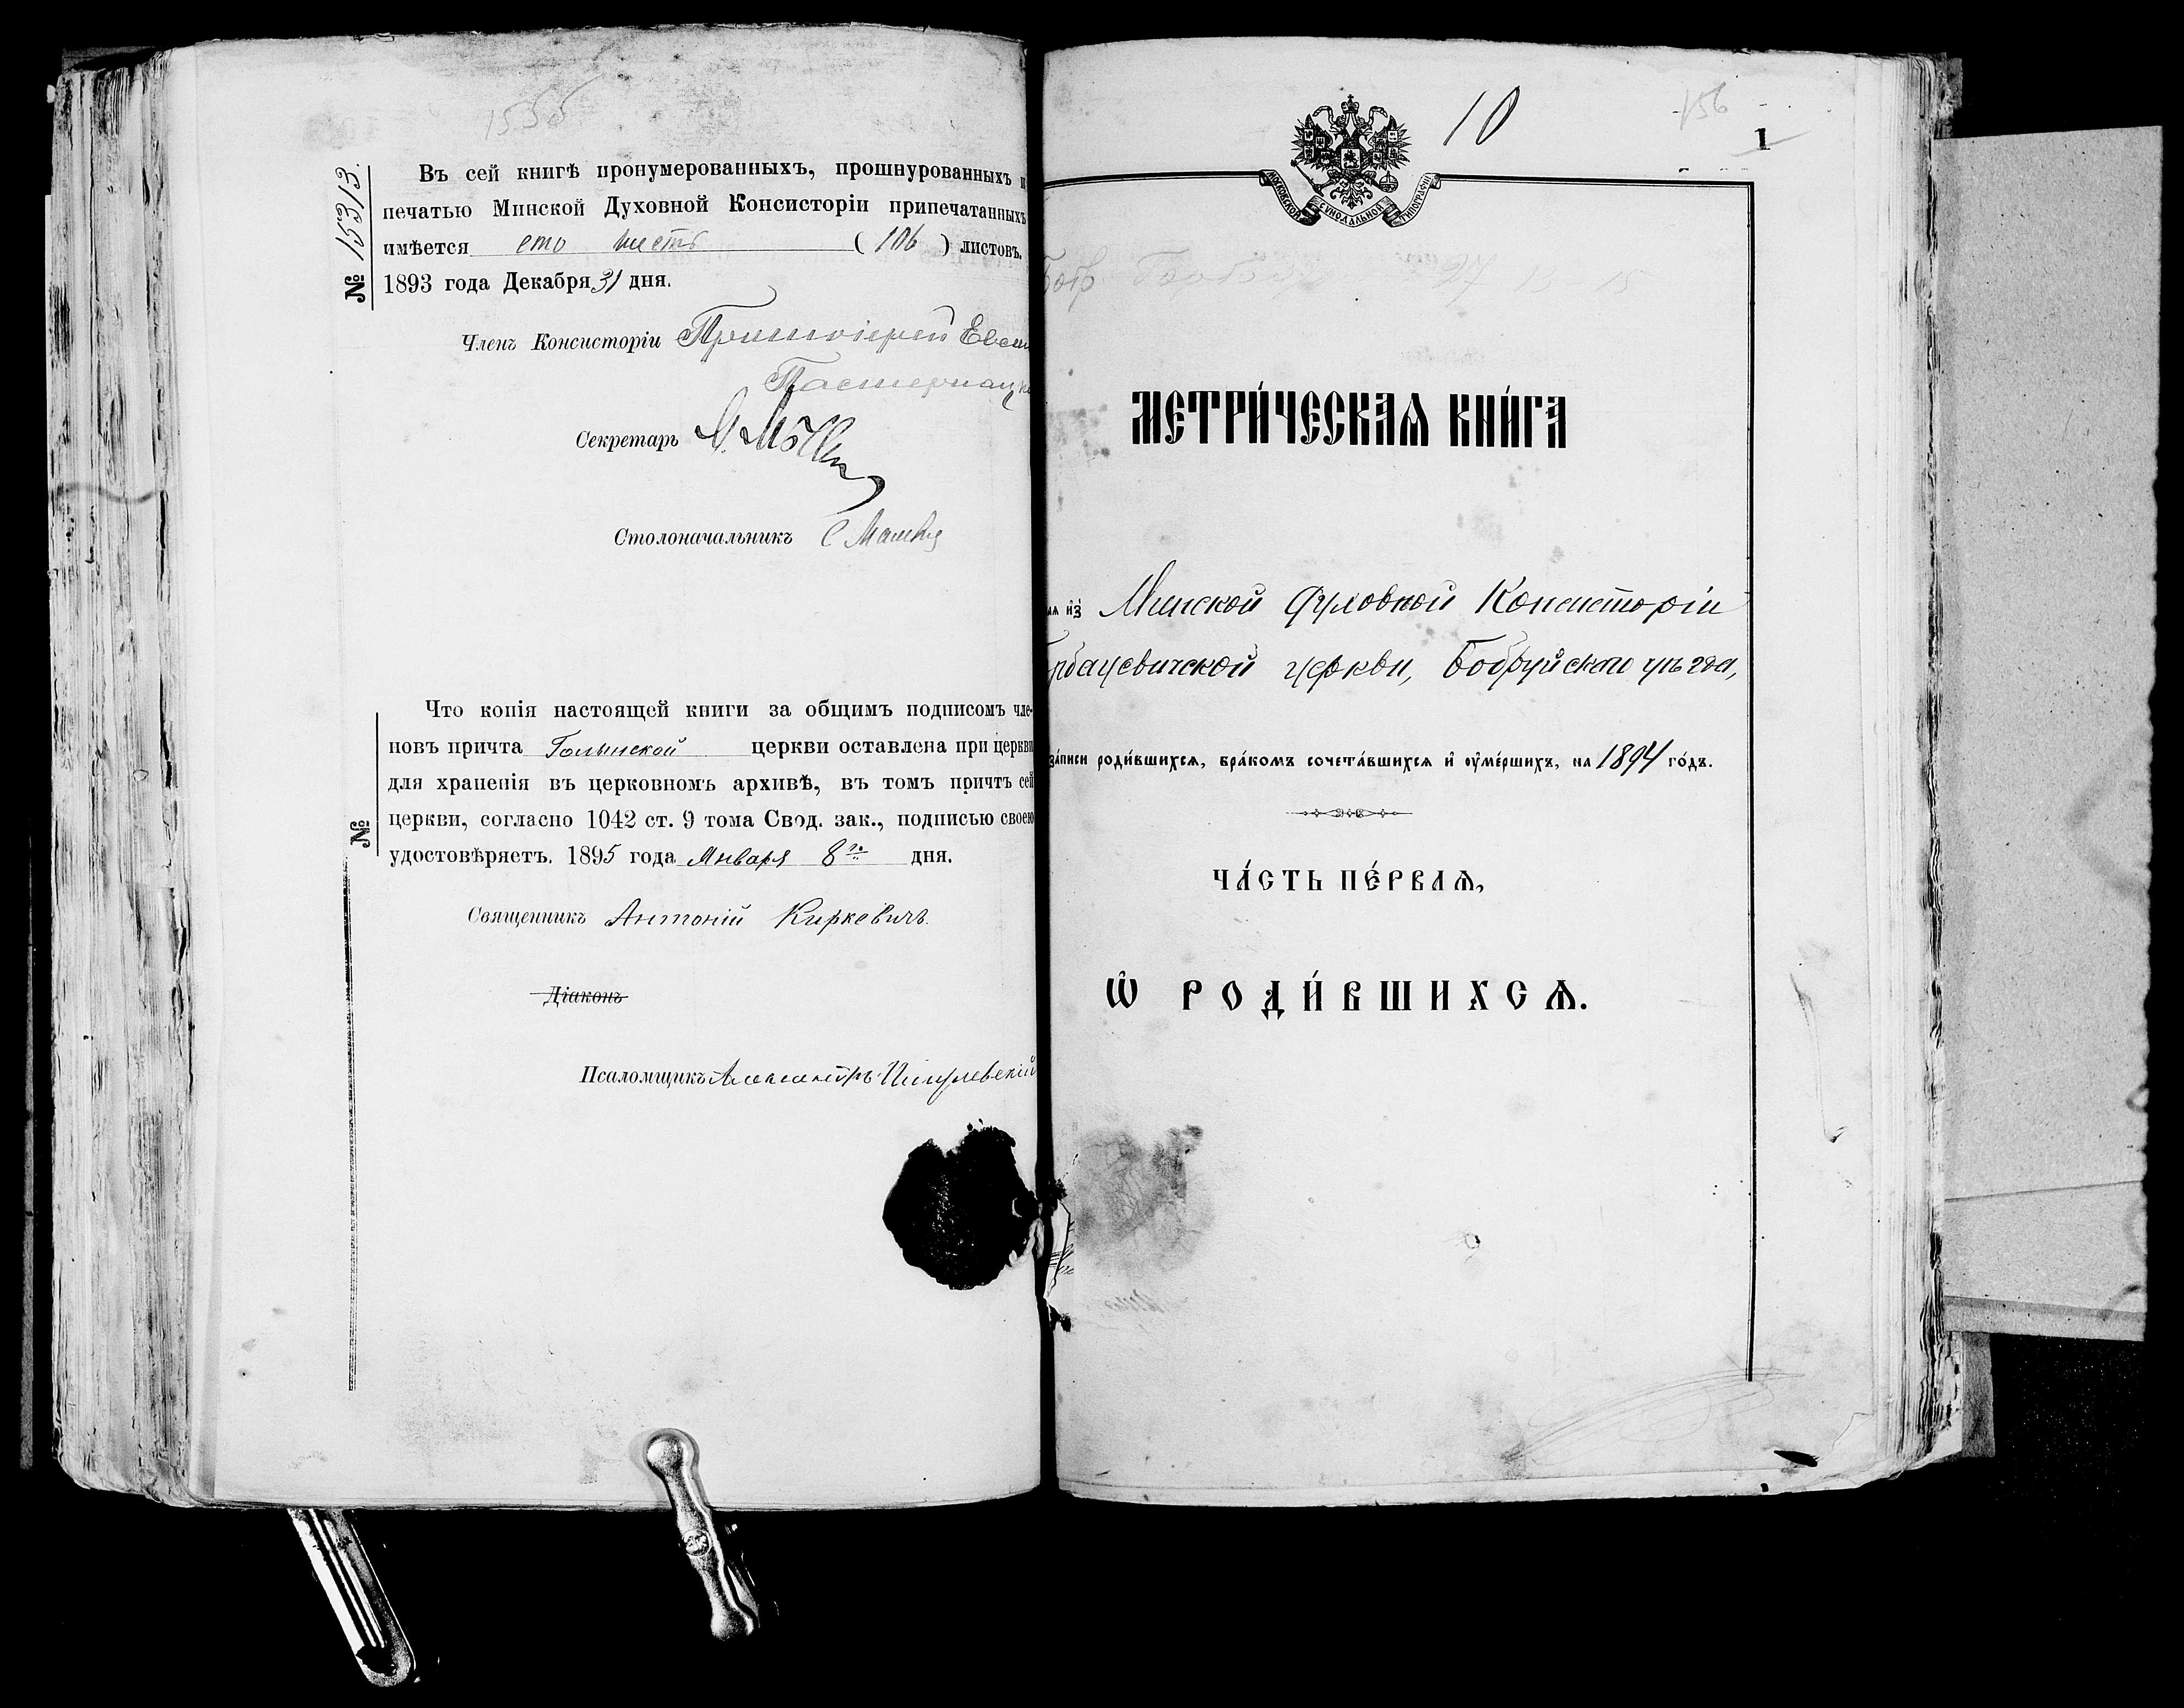 155б
№ 15313.
Въ сей книгѣ пронумерованныхъ, прошнурованныхъ и
печатью Минской Духовной Консисторіи припечатанныхъ
имѣется сто шесть (106) листовъ.
1893 года Декабря 31 дня.
Членъ Консисторіи Протоіерей
Секретарь
Столоначальникъ
Что копія настоящей книги за общимъ подписомъ чле-
новъ причта Голынской церкви оставлена при церкви
для храненія въ церковномъ архивѣ, въ томъ причтъ сей
церкви, согласно 1042 ст. 9 тома Свод. зак., подписью своею
удостовѣряетъ. 1895 года Января 8го дня.
№
Священникъ Антоній Киркевичъ.
Діаконъ
Псаломщикъ Александръ
10
156
1
МОСКОВСКОЙ СѴНОДАЛЬНОЙ ТИПОГРАФІИ
МЕТРИ́ЧЕСКАѦ КНИ́ГА
из̾ Минской Духовной Консисторіи
рбацевичской церкви, Бобруйского уѣзда,
за́писи роди́вшихсѧ, бра́комъ сочета́вшихсѧ и҆ ᲂу҆ме́ршихъ, на 1894 го́дъ.
ЧА́СТЬ ПЕ́РВАѦ,
Ѡ҆ РОДИ́ВШИХСѦ.